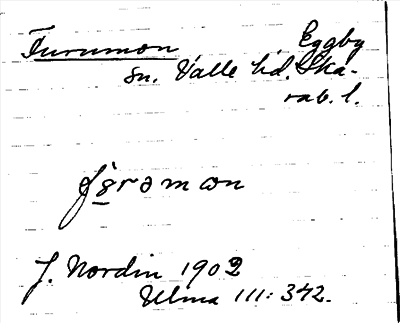 Furumon Eggby
sn. Valle hd. Ska-
rab. l.
J. Nordin 1902
Ulma 111: 342.